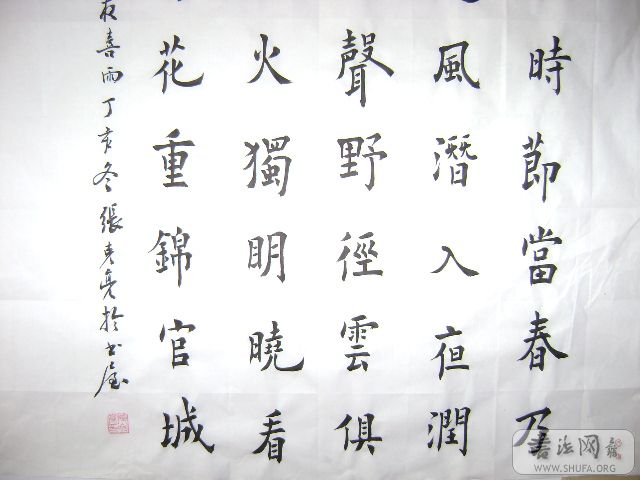 時節當春乃
風潛入夜潤
聲野徑雲俱
火獨明曉看
花重錦官城
夜喜雨丁亥冬張
於書屋
書法网
WWW.SHUFA.ORG